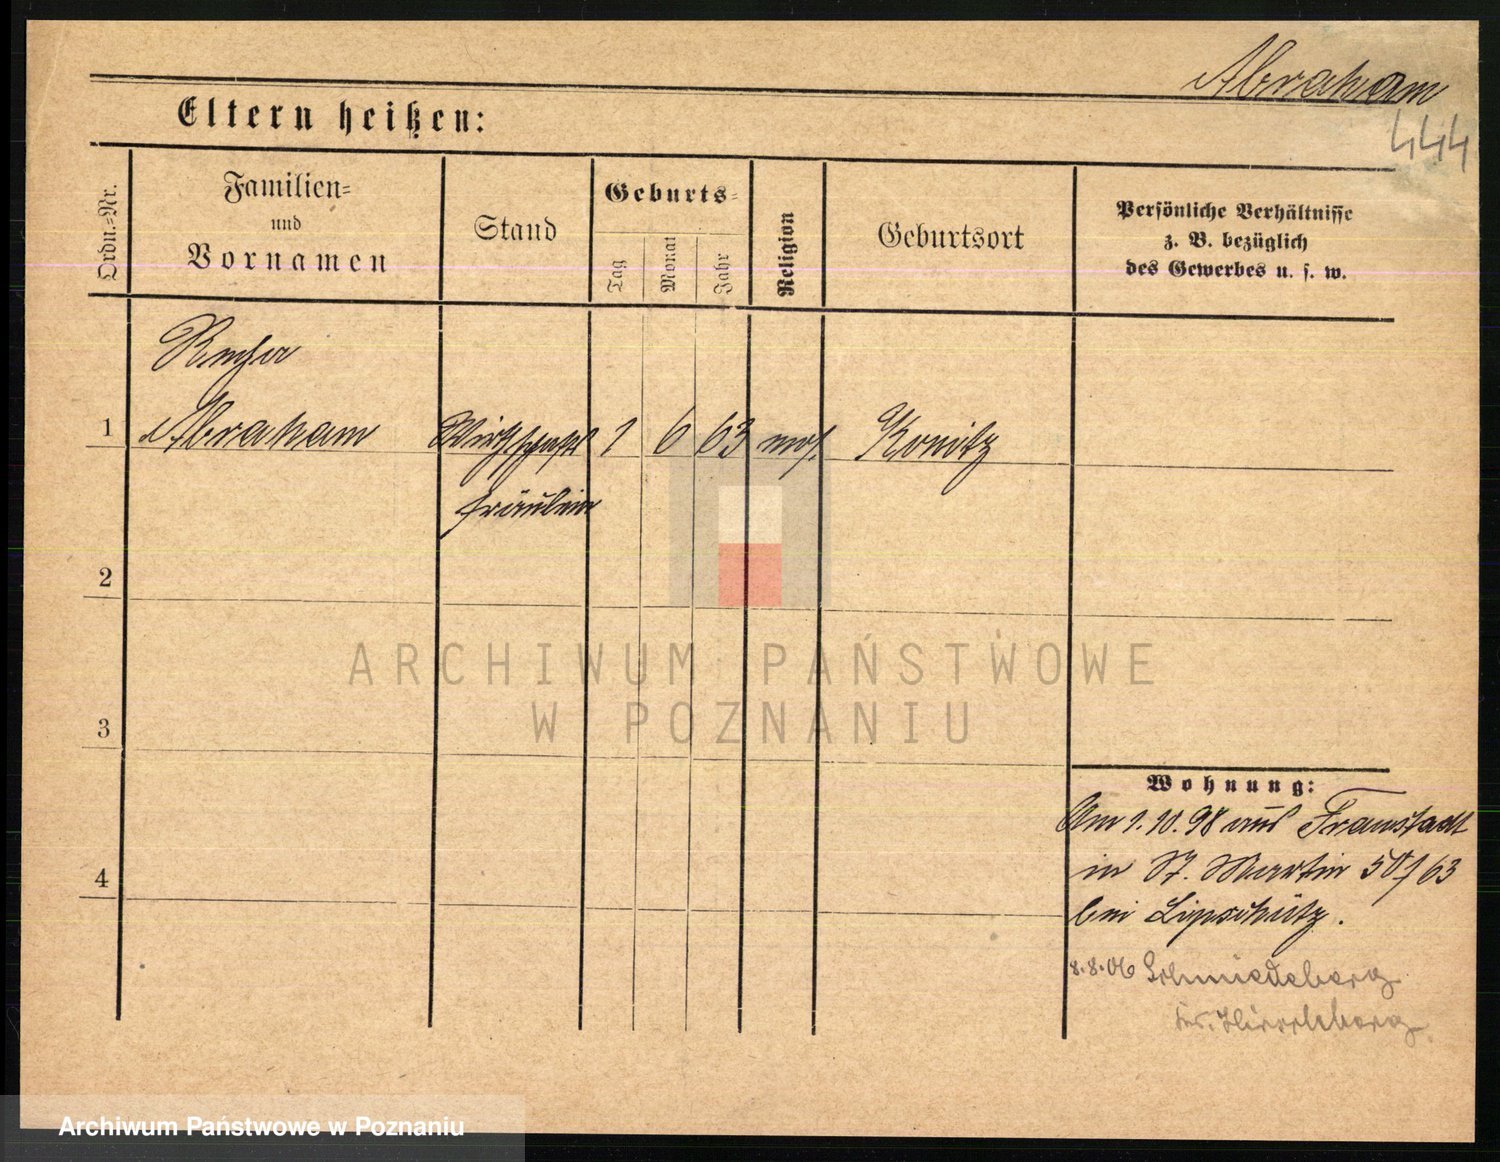 Abraham
444
Eltern heißen:
Ordn.=Nr.
Familien=
und
Vornamen
Stand
Geburts=
Tag
Monat
Jahr
Religion
Geburtsort
Persönliche Verhältnisse
z. B. bezüglich
des Gewerbes u. s. w.
1
Abraham
Wirthschafts
fräulein
1
6
63
mos.
Konitz
2
3
4
Wohnung:
Am 1.10.98 aus Fraustadt
in St. Martin 63
bei Lipschütz.
8.8.06 Schmiedeberg
Hirschberg
ARCHIWUM PAŃSTWOWE
W POZNANIU
Archiwum Państwowe w Poznaniu